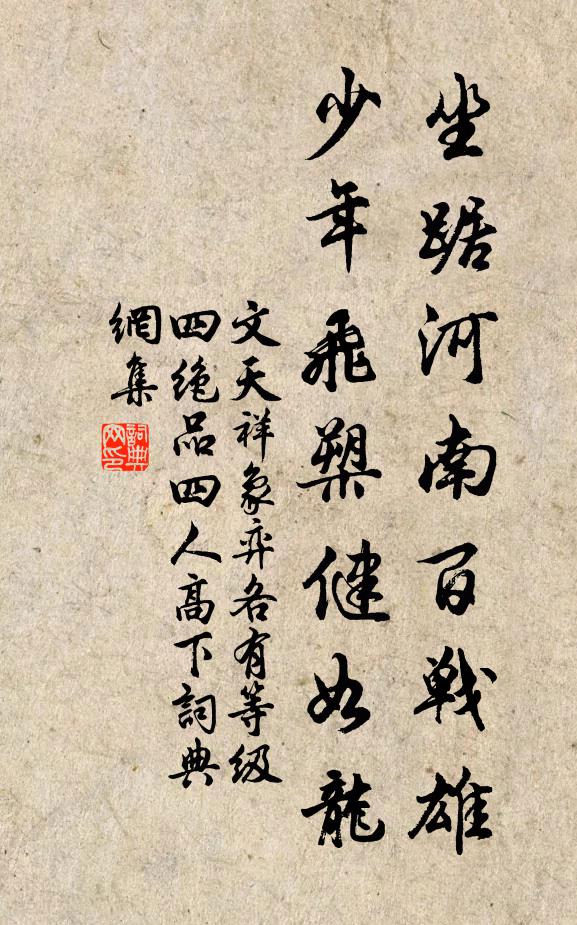 坐踞河南百战雄
少年飛槊健如龍
文天祥象弈各有等级
四绝品四人高下詞典
網集
詞典
网印